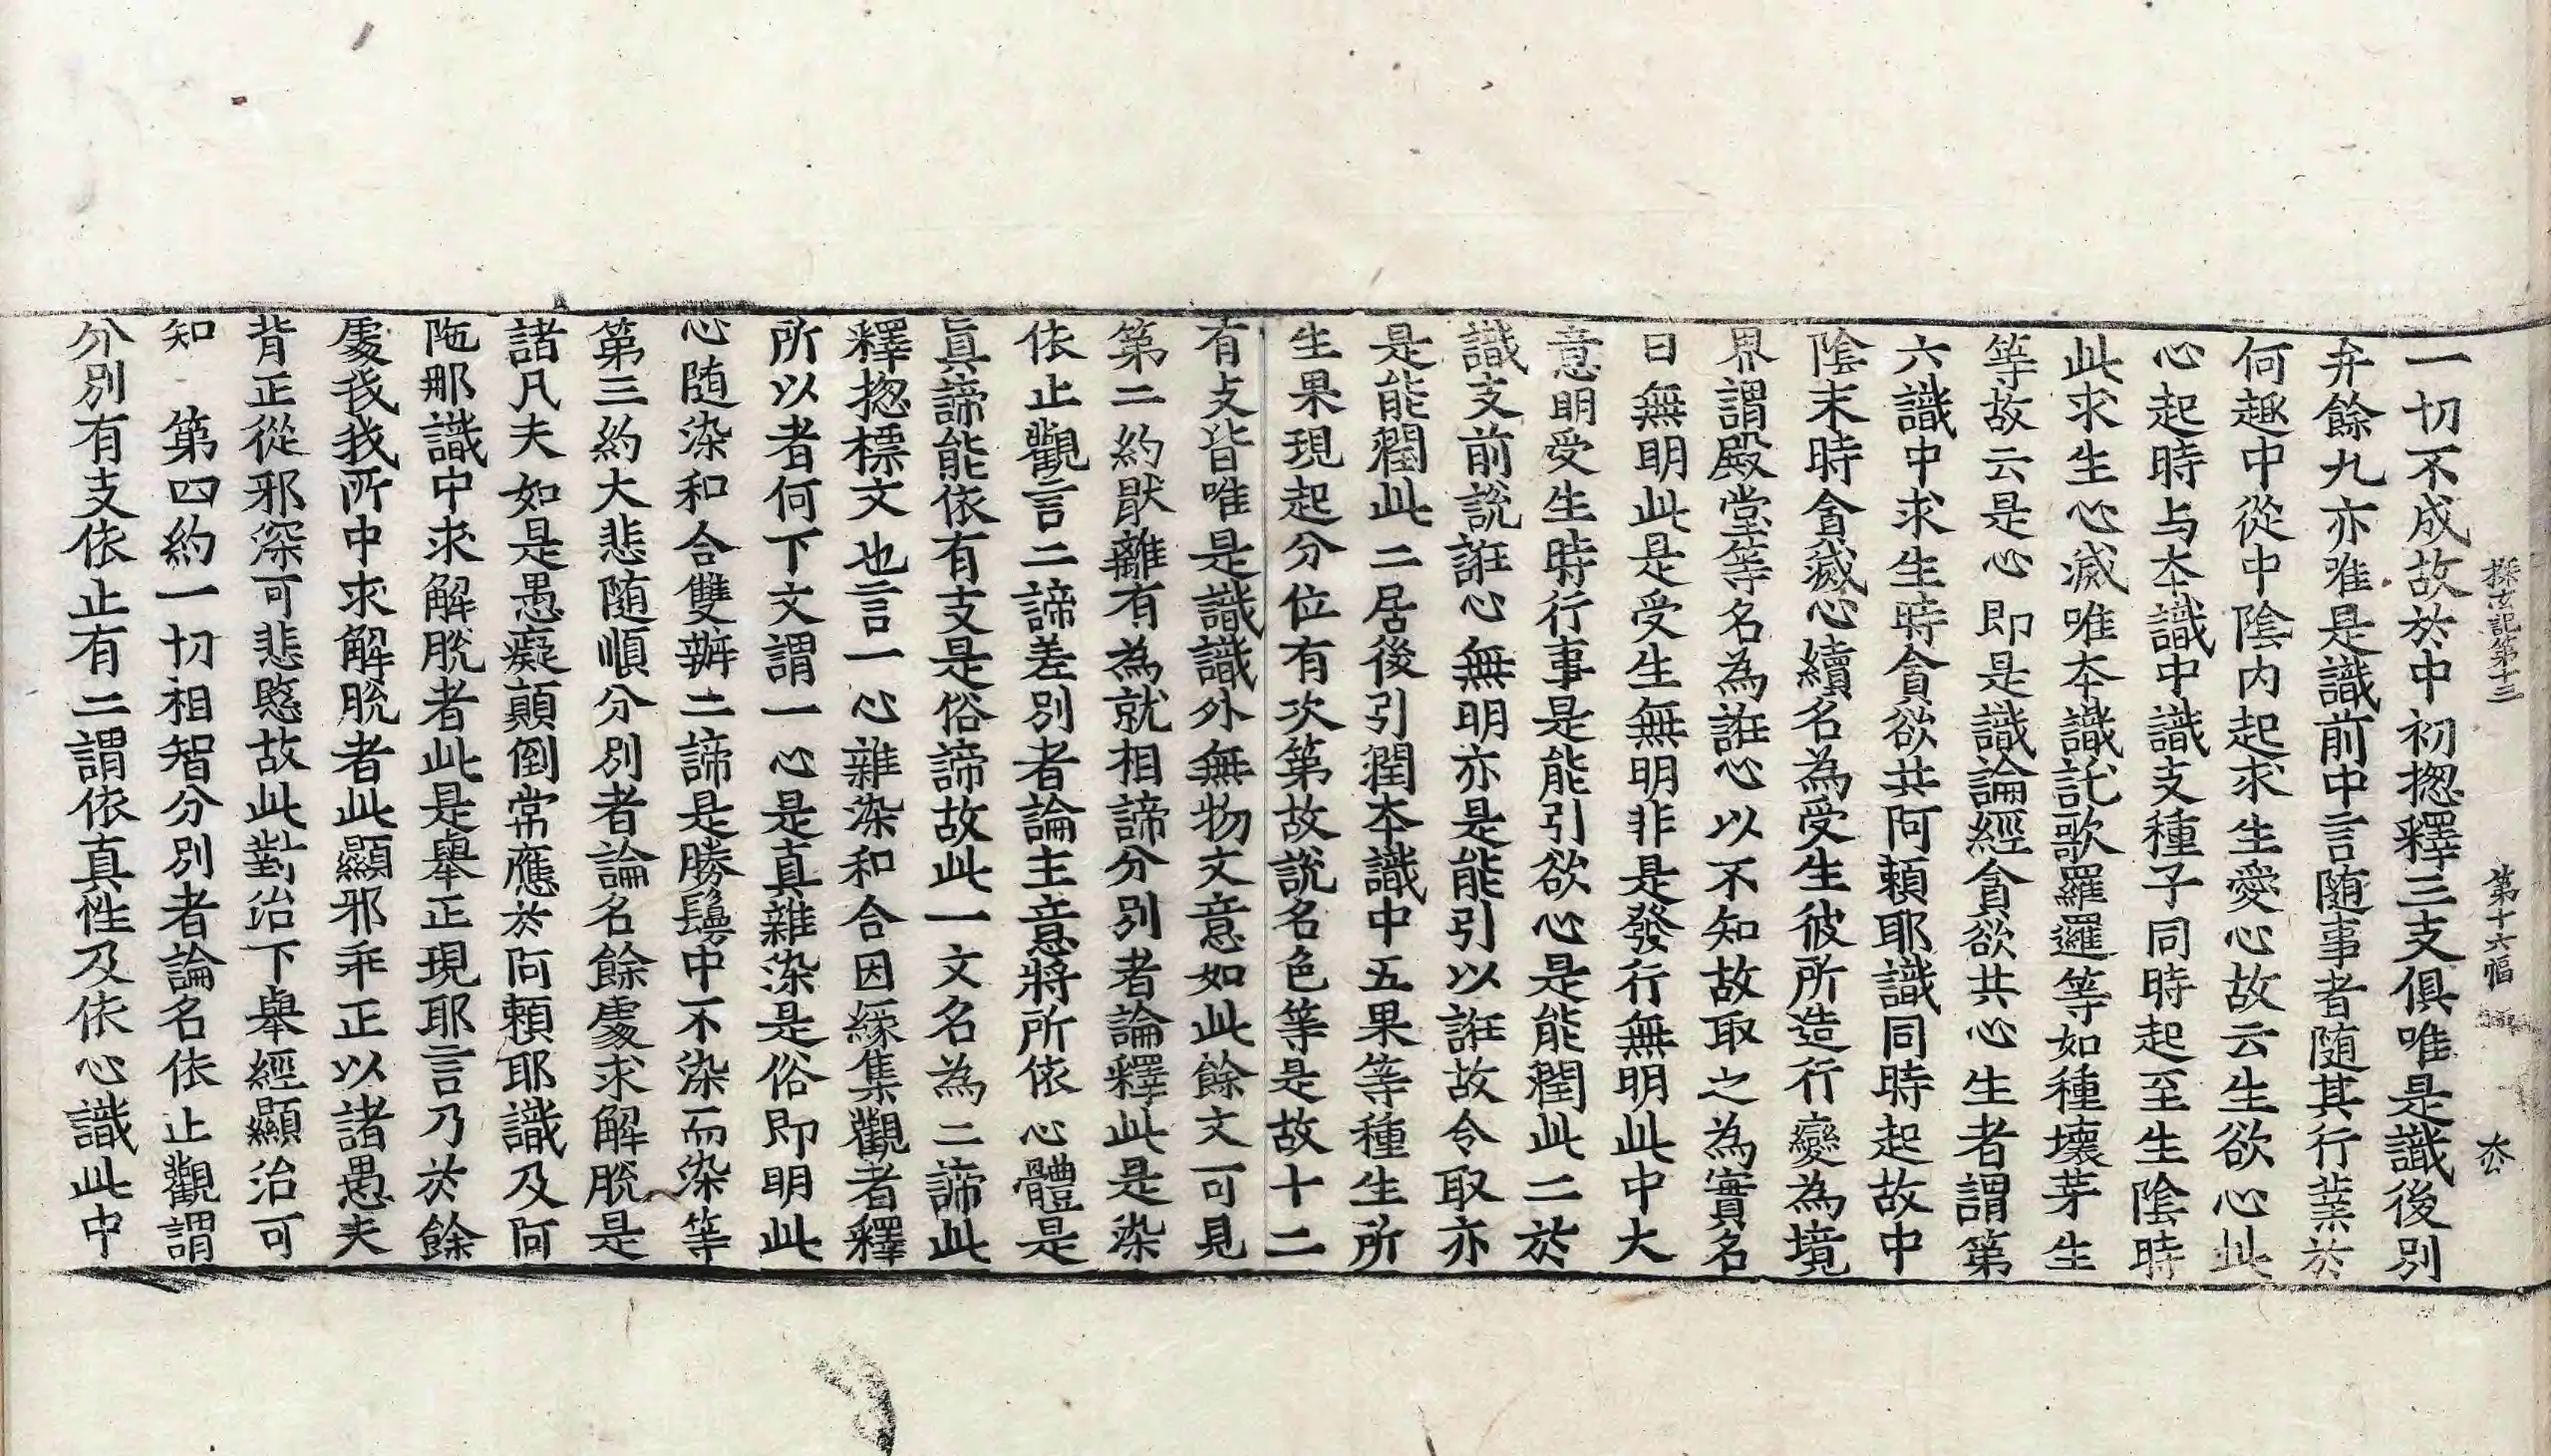 探玄記第十三　第十六幅
一切不成故於中初揔釋三支俱唯是識後別
弁餘九亦唯是識前中言随事者随其行業於
何趣中從中陰內起求生愛心故云生欲心此
心起時与本識中識支種子同時起至生陰時
此求生心滅唯本識託歌羅邏等如種壞芽生
等故云是心即是識論經貪欲共心生者謂第
六識中求生時貪欲共阿頼耶識同時起故中
陰末時貪滅心續名為受生彼所造行變為境
界謂殿堂等名為誑心以不知故取之為實名
曰無明此是受生無明非是發行無明此中大
意明受生時行事是能引欲心是能潤此二於
識支前說誑心無明亦是能引以誑故令取亦
是能潤此二居後引潤本識中五果等種生所
生果現起分位有次第故說名色等是故十二
有支皆唯是識識外無物文意如此餘文可見
第二約猒離有為就相諦分別者論釋此是染
依止觀言二諦差別者論主意將所依心體是
真諦能依有支是俗諦故此一文名為二諦此
釋揔標文也言一心雜染和合因緣集觀者釋
所以者何下文謂一心是真雜染是俗即明此
心随染和合雙辨二諦是勝鬘中不染而染等
第三約大悲随順分別者論名餘處求解脫是
諸凡夫如是愚癡顛倒常應於阿頼耶識及阿
陁那識中求解脫者此是舉正現耶言乃於餘
處我我所中求解脫者此顯邪乖正以諸愚夫
背正從邪深可悲愍故此對治下舉經顯治可
知　第四約一切相智分別者論名依止觀謂
分別有支依止有二謂依真性及依心識此中